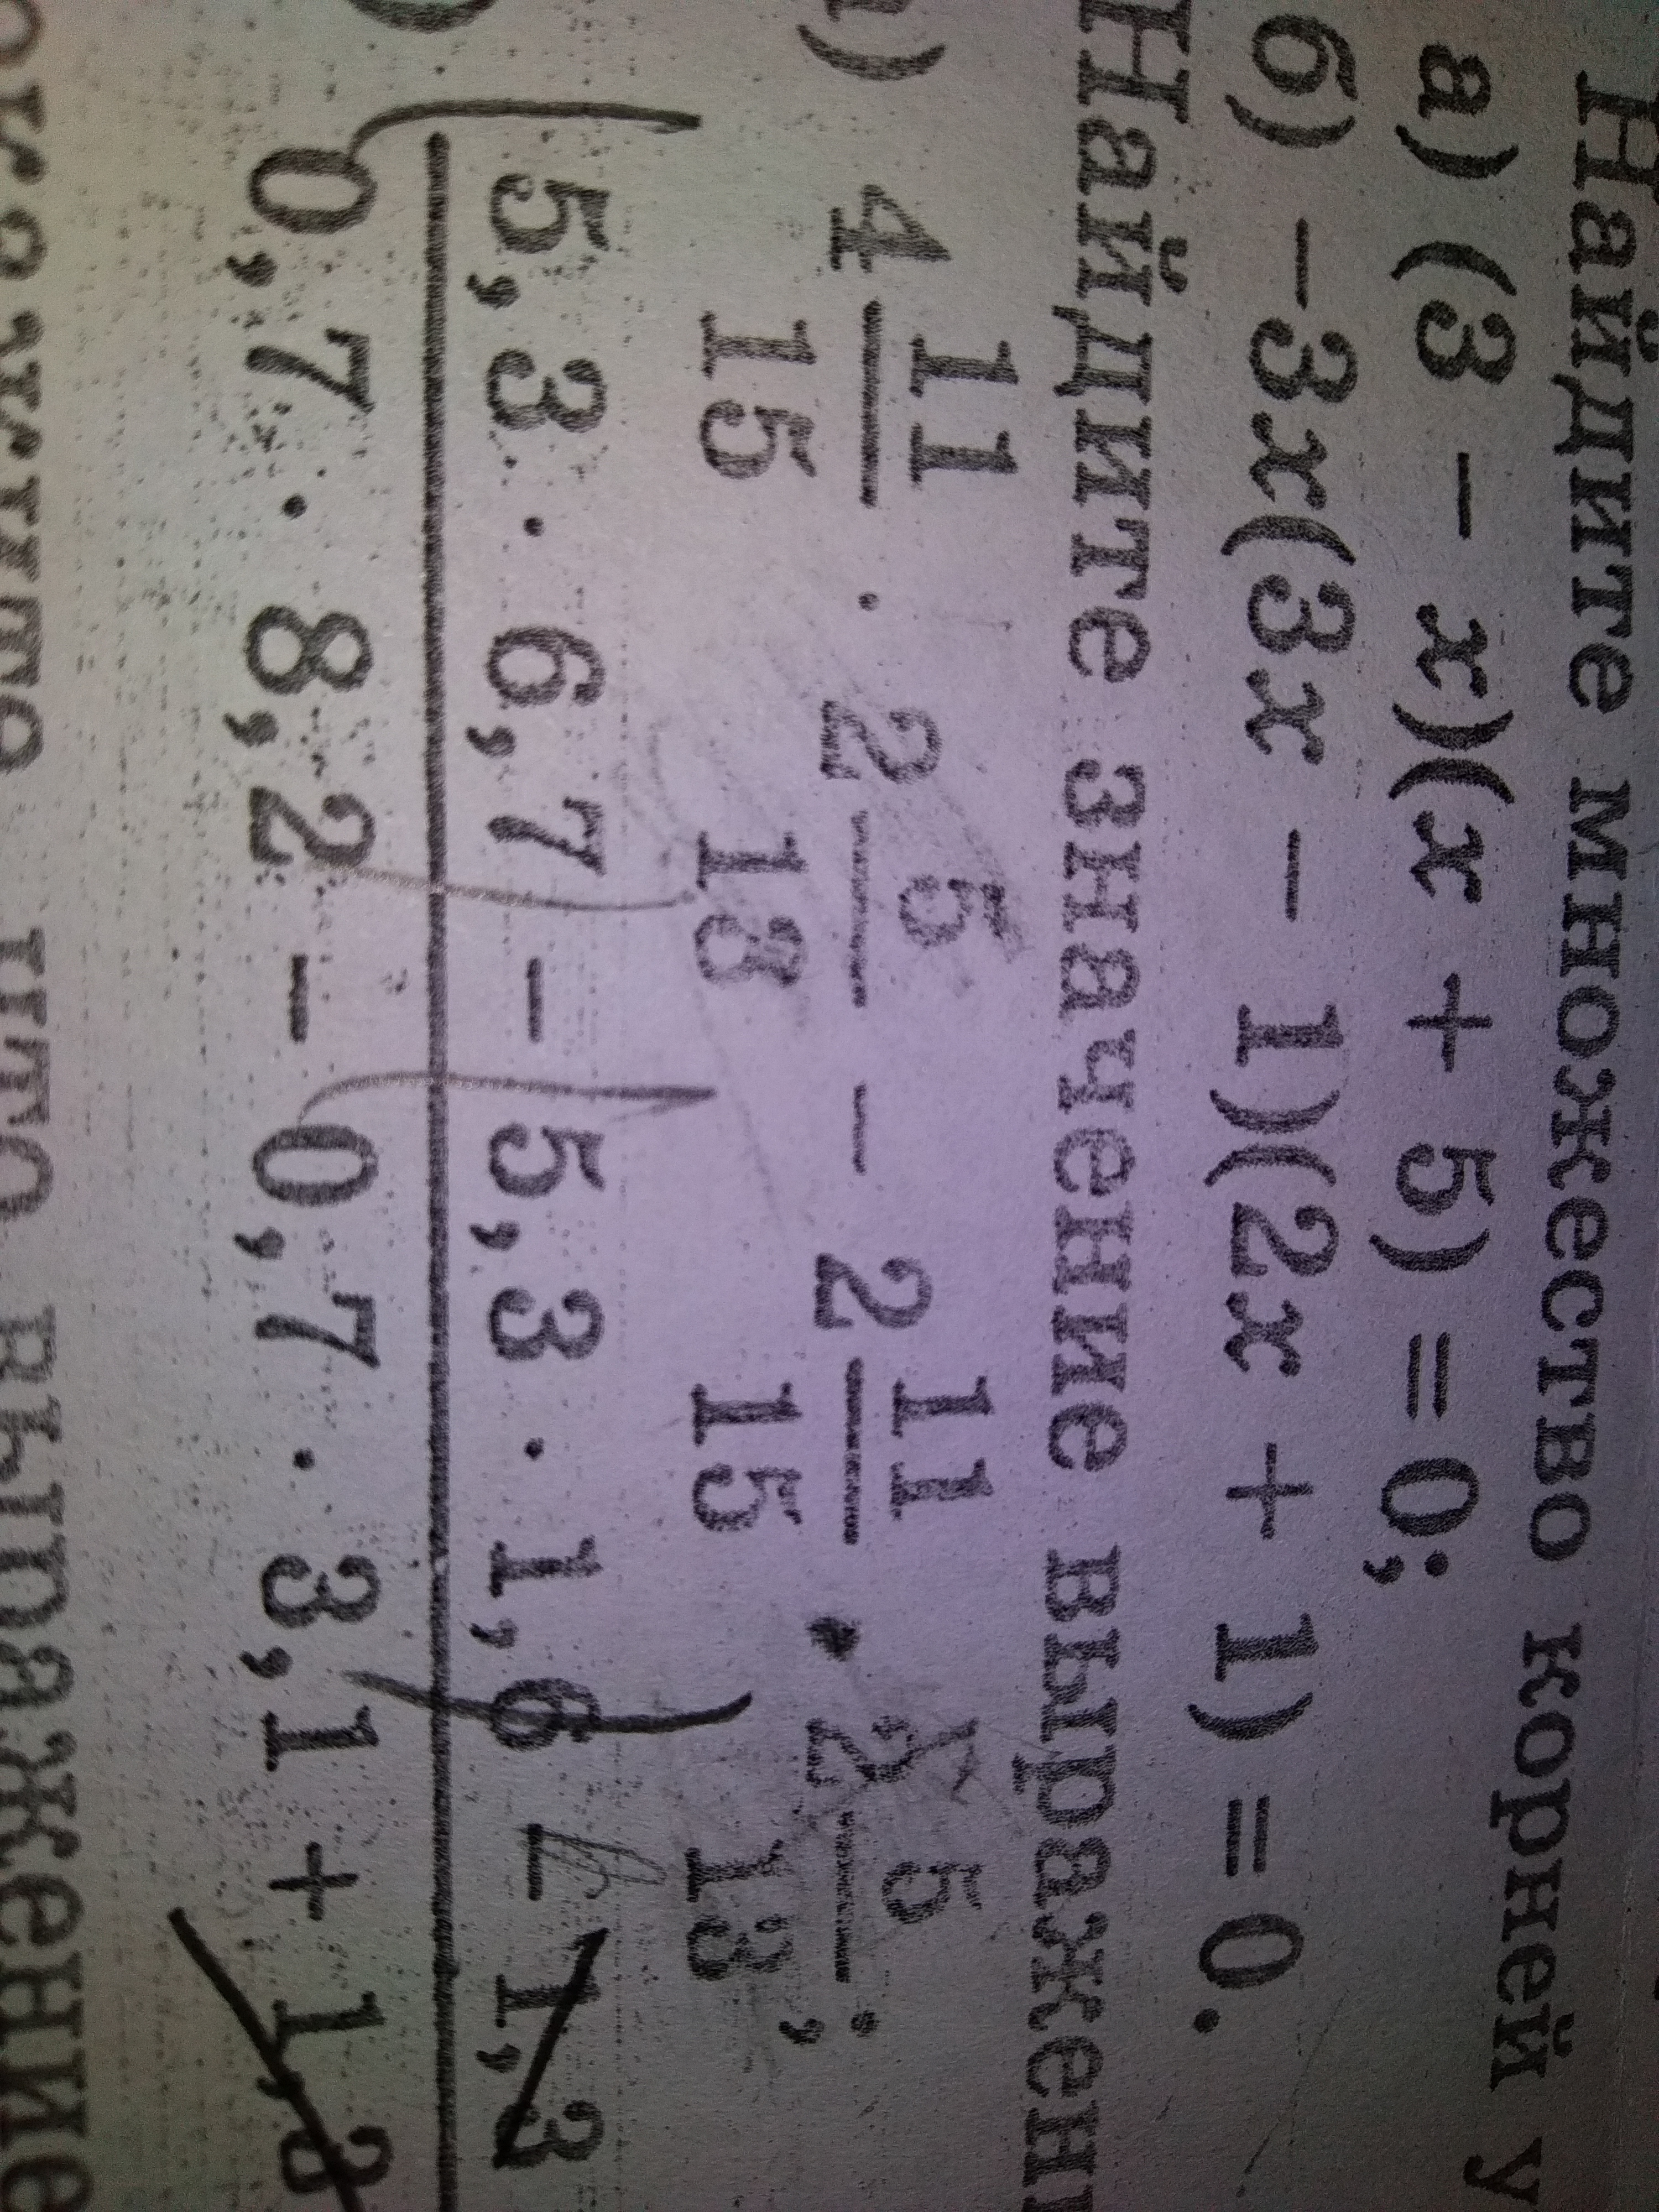 Найдите множество корней у
а) (3 − x)(x + 5) = 0;
б) −3x(3x − 1)(2x + 1) = 0.
Найдите значение выражени
) 4 11/15 · 2 5/13 − 2 11/15 · 2 5/13;
5,3 · 6,7 − 5,3 · 1,6 − 1,3
0,7 · 8,2 − 0,7 · 3,1 + 1,3
что выражение